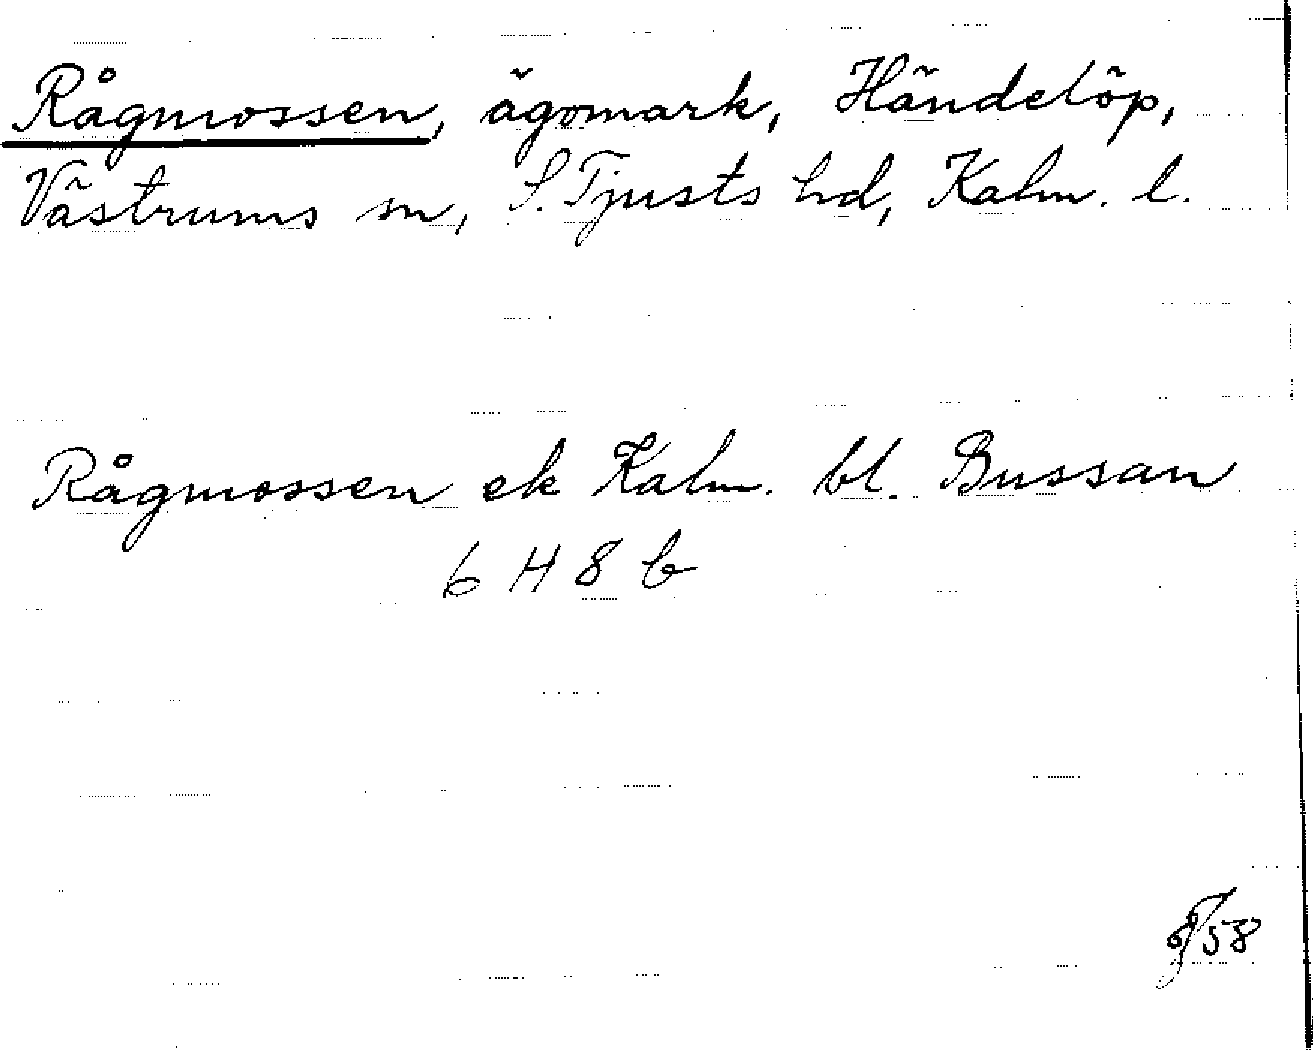 Rågmossen, ägomark, Händelöp,
Västrums sn, S. Tjusts hd, Kalm. l.
Rågmossen ek Kalm. bl. Bussan
6 H 8 b
58